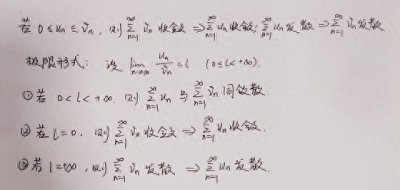 若 0 ≤ uₙ ≤ vₙ, 则 ∑_{n=1}^{∞} vₙ 收敛 ⇒ ∑_{n=1}^{∞} uₙ 收敛; ∑_{n=1}^{∞} uₙ 发散 ⇒ ∑_{n=1}^{∞} vₙ 发散
极限形式: 设 lim_{n→∞} uₙ/vₙ = l (0≤l<+∞)
① 若 0<l<+∞, 则 ∑_{n=1}^{∞} uₙ 与 ∑_{n=1}^{∞} vₙ 同敛散.
② 若 l=0, 则 ∑_{n=1}^{∞} vₙ 收敛 ⇒ ∑_{n=1}^{∞} uₙ 收敛.
③ 若 l=+∞, 则 ∑_{n=1}^{∞} vₙ 发散 ⇒ ∑_{n=1}^{∞} uₙ 发散.